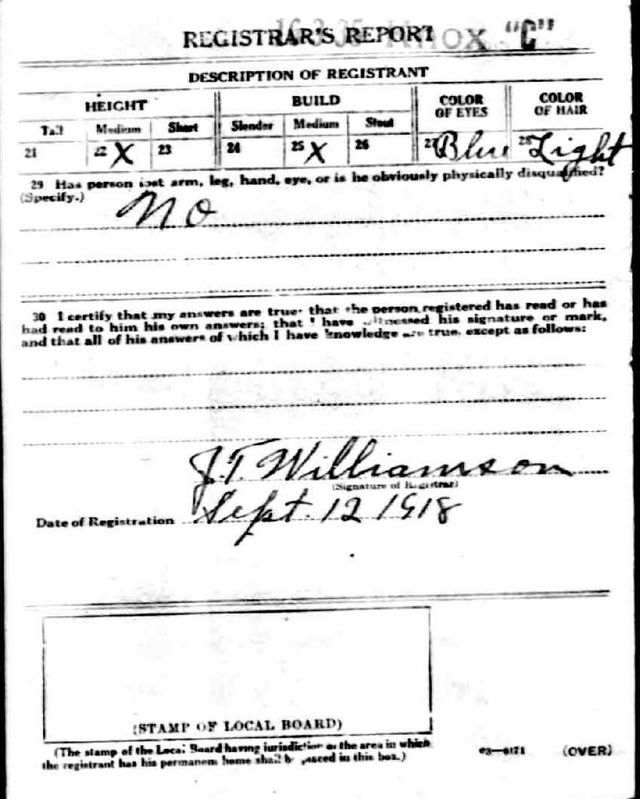 16-3-35 Knox "C"
REGISTRAR'S REPORT
DESCRIPTION OF REGISTRANT
HEIGHT BUILD COLOR OF EYES COLOR OF HAIR
Tall Medium Short Slender Medium Stout
21 22 X 23 24 25 X 26 27 Blue 28 Light
29 Has person lost arm, leg, hand, eye, or is he obviously physically disqualified?
(Specify.) No
30 I certify that my answers are true; that the person registered has read or has
had read to him his own answers; that I have witnessed his signature or mark,
and that all of his answers of which I have knowledge are true, except as follows:
J.T. Williamson
(Signature of Registrar)
Date of Registration Sept. 12 1918
(STAMP OF LOCAL BOARD)
(The stamp of the Local Board having jurisdiction of the area in which
the registrant has his permanent home shall be placed in this box.)
03—6171 (OVER)